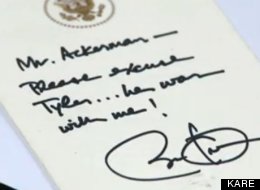 Mr. Ackerman —
Please excuse
Tyler... he was
with me!
KARE